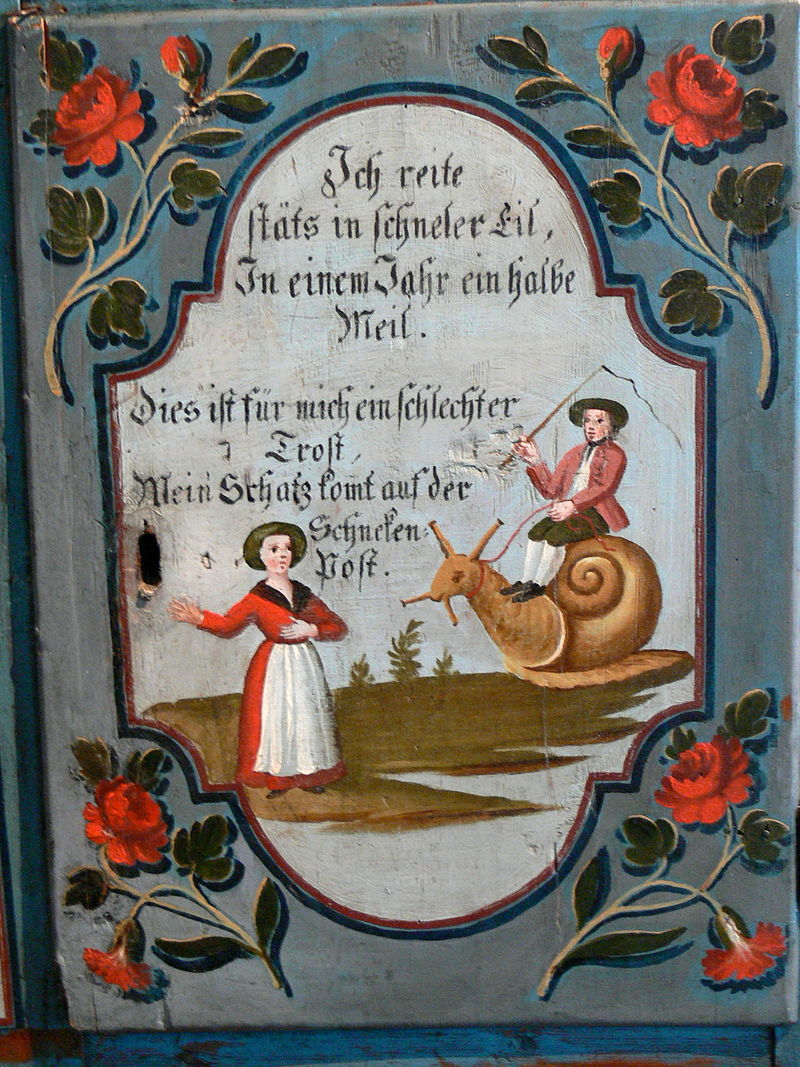 Ich reite
stäts in schneler Eil,
In einem Jahr ein halbe
Meil.
Dies ist für mich ein schlechter
Trost,
Mein Schatz komt auf der
Schneken-
Post.